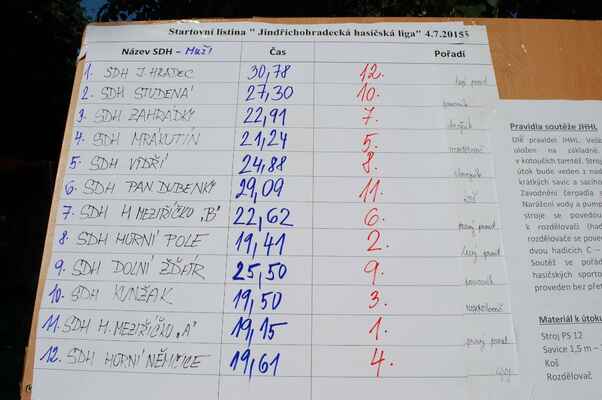 Startovní listina " Jindřichohradecká hasičská liga" 4.7.2015
Název SDH - Muži Čas Pořadí
1. SDH J. HRADEC 30,78 12.
2. SDH STUDENÁ 27,30 10.
3. SDH ZAHRÁDKY 22,91 7.
4. SDH MRÁKOTÍN 21,24 5.
5. SDH VYDŘÍ 24,88 8.
6. SDH PAN DUBENKY 29,09 11.
7. SDH H MEZIŘÍČKO „B" 22,62 6.
8. SDH HORNÍ POLE 19,41 2.
9. SDH DOLNÍ ŽĎÁR 25,50 9.
10. SDH KUNŽAK 19,50 3.
11. SDH H. MEZIŘÍČKO „A" 19,15 1.
12. SDH HORNÍ NĚMČICE 19,61 4.
Pravidla soutěže JHHL
Dle pravidel JHHL.
uložen na základně.
v kotoučích tamtéž. Stroj
útok bude veden z nád
krátkých savic a sacího
Zavodnění čerpadla s
Narážení vody a pump
stroje se povedou
k rozdělovači (had
rozdělovače se pove
dvou hadicích C –
Soutěž se pořád
hasičských sporto
proveden bez pře
Materiál k útoku
Stroj PS 12
Savice 1,5 m –
Koš
Rozdělovač